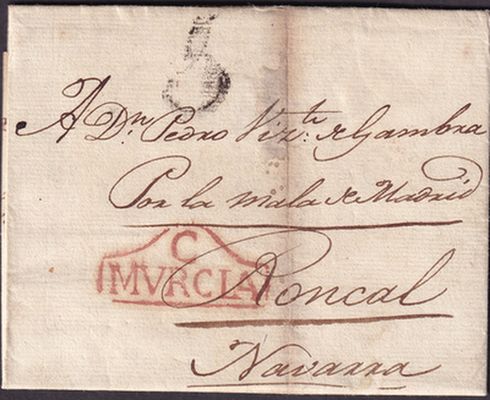 5
A Dn. Pedro Vizte. de Gambra
Por la mala de Madrid
C
MVRCIA
Roncal
Navarra